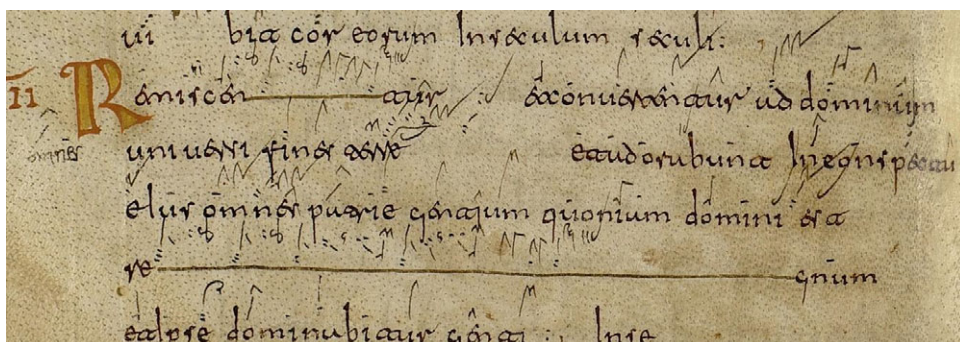 ui bit cor eorum In seculum seculi:
II Reminiscen tur : et conuertentur ad dominum
omnes uniuersi fines terre et adorabunt In conspectu
eius omnes patrie gentium quoniam domini est
re gnum
et Ipse dominabitur